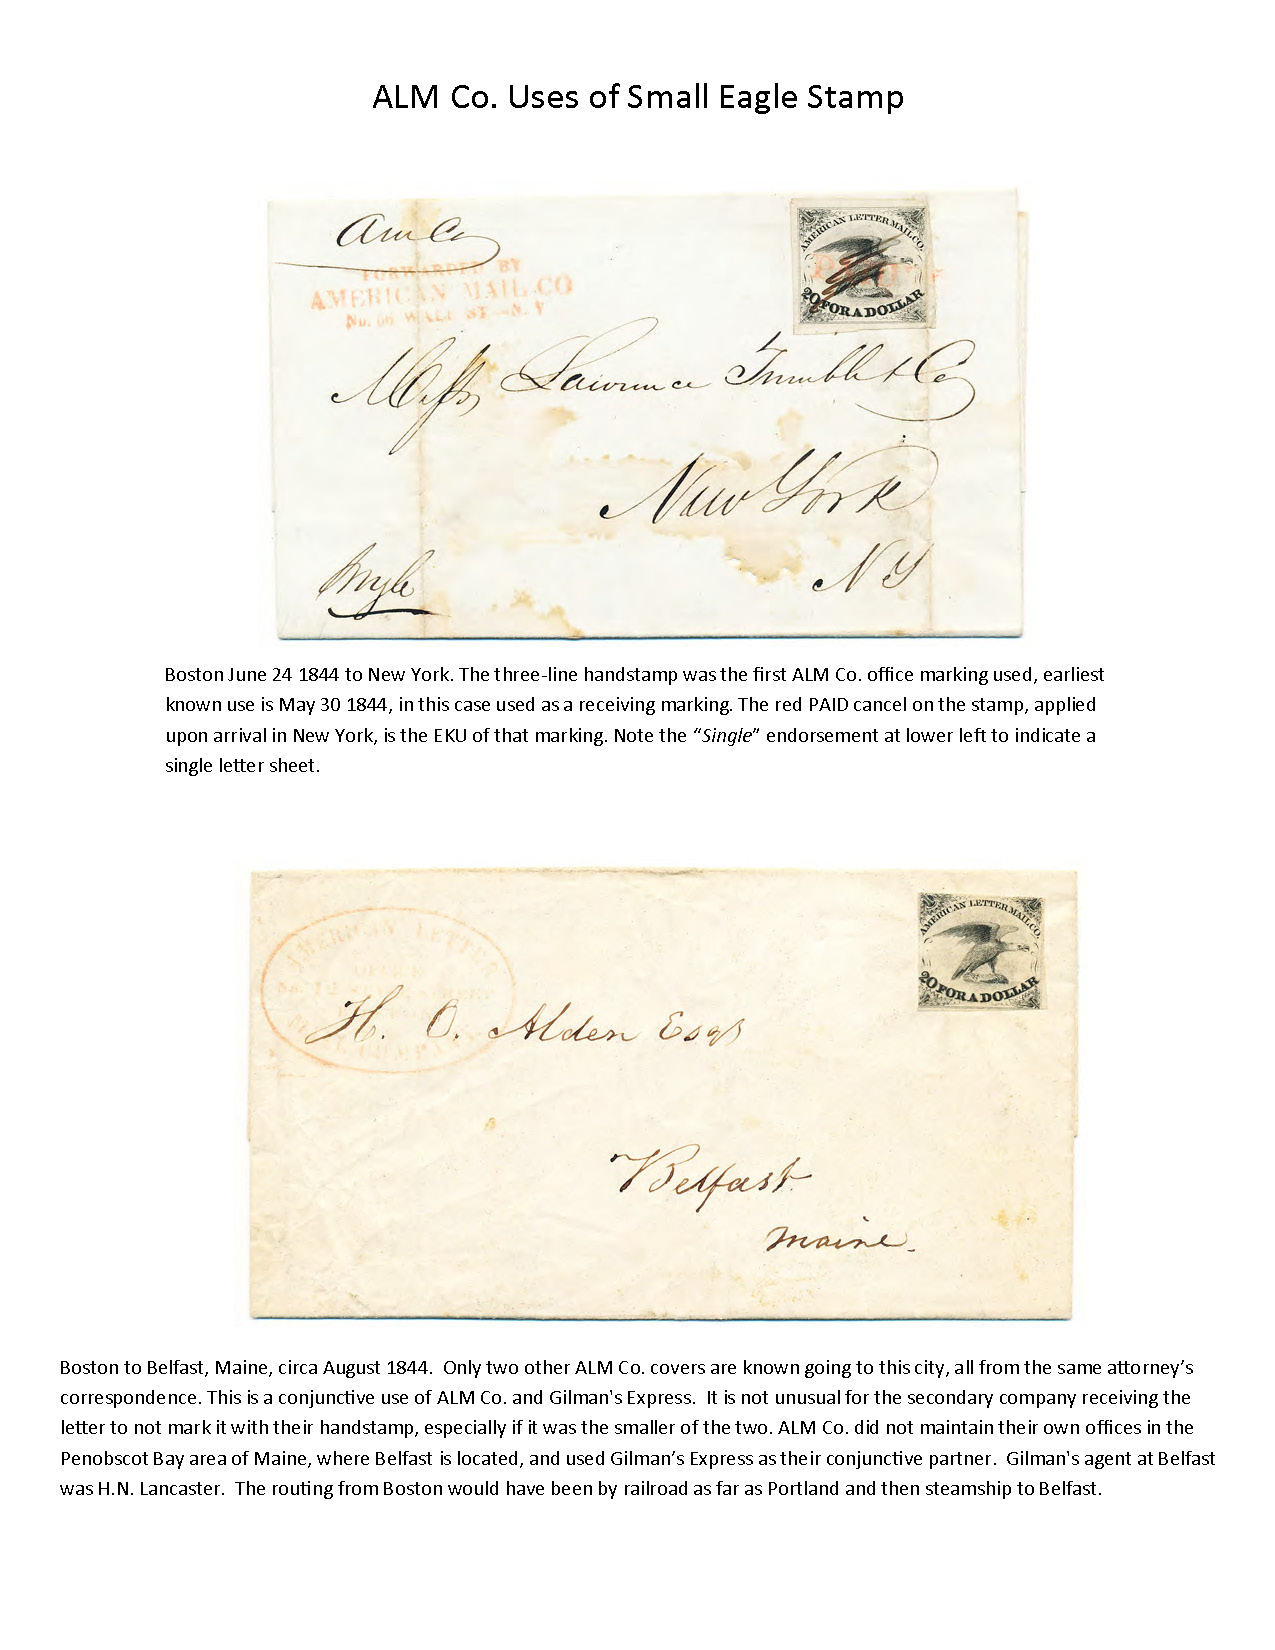 ALM Co. Uses of Small Eagle Stamp
Am Co
FORWARDED BY
AMERICAN MAIL CO
No. 56 WALL ST.—N. Y
AMERICAN LETTER MAIL CO.
20 FOR A DOLLAR
PAID
Mess Lawrence Trimble & Co
New York
NY
Single
Boston June 24 1844 to New York. The three-line handstamp was the first ALM Co. office marking used, earliest
known use is May 30 1844, in this case used as a receiving marking. The red PAID cancel on the stamp, applied
upon arrival in New York, is the EKU of that marking. Note the “Single” endorsement at lower left to indicate a
single letter sheet.
AMERICAN LETTER
OFFICE
COMPANY
AMERICAN LETTER MAIL CO.
20 FOR A DOLLAR
H. O. Alden Esqr
Belfast
Maine.
Boston to Belfast, Maine, circa August 1844. Only two other ALM Co. covers are known going to this city, all from the same attorney’s
correspondence. This is a conjunctive use of ALM Co. and Gilman's Express. It is not unusual for the secondary company receiving the
letter to not mark it with their handstamp, especially if it was the smaller of the two. ALM Co. did not maintain their own offices in the
Penobscot Bay area of Maine, where Belfast is located, and used Gilman’s Express as their conjunctive partner. Gilman's agent at Belfast
was H.N. Lancaster. The routing from Boston would have been by railroad as far as Portland and then steamship to Belfast.